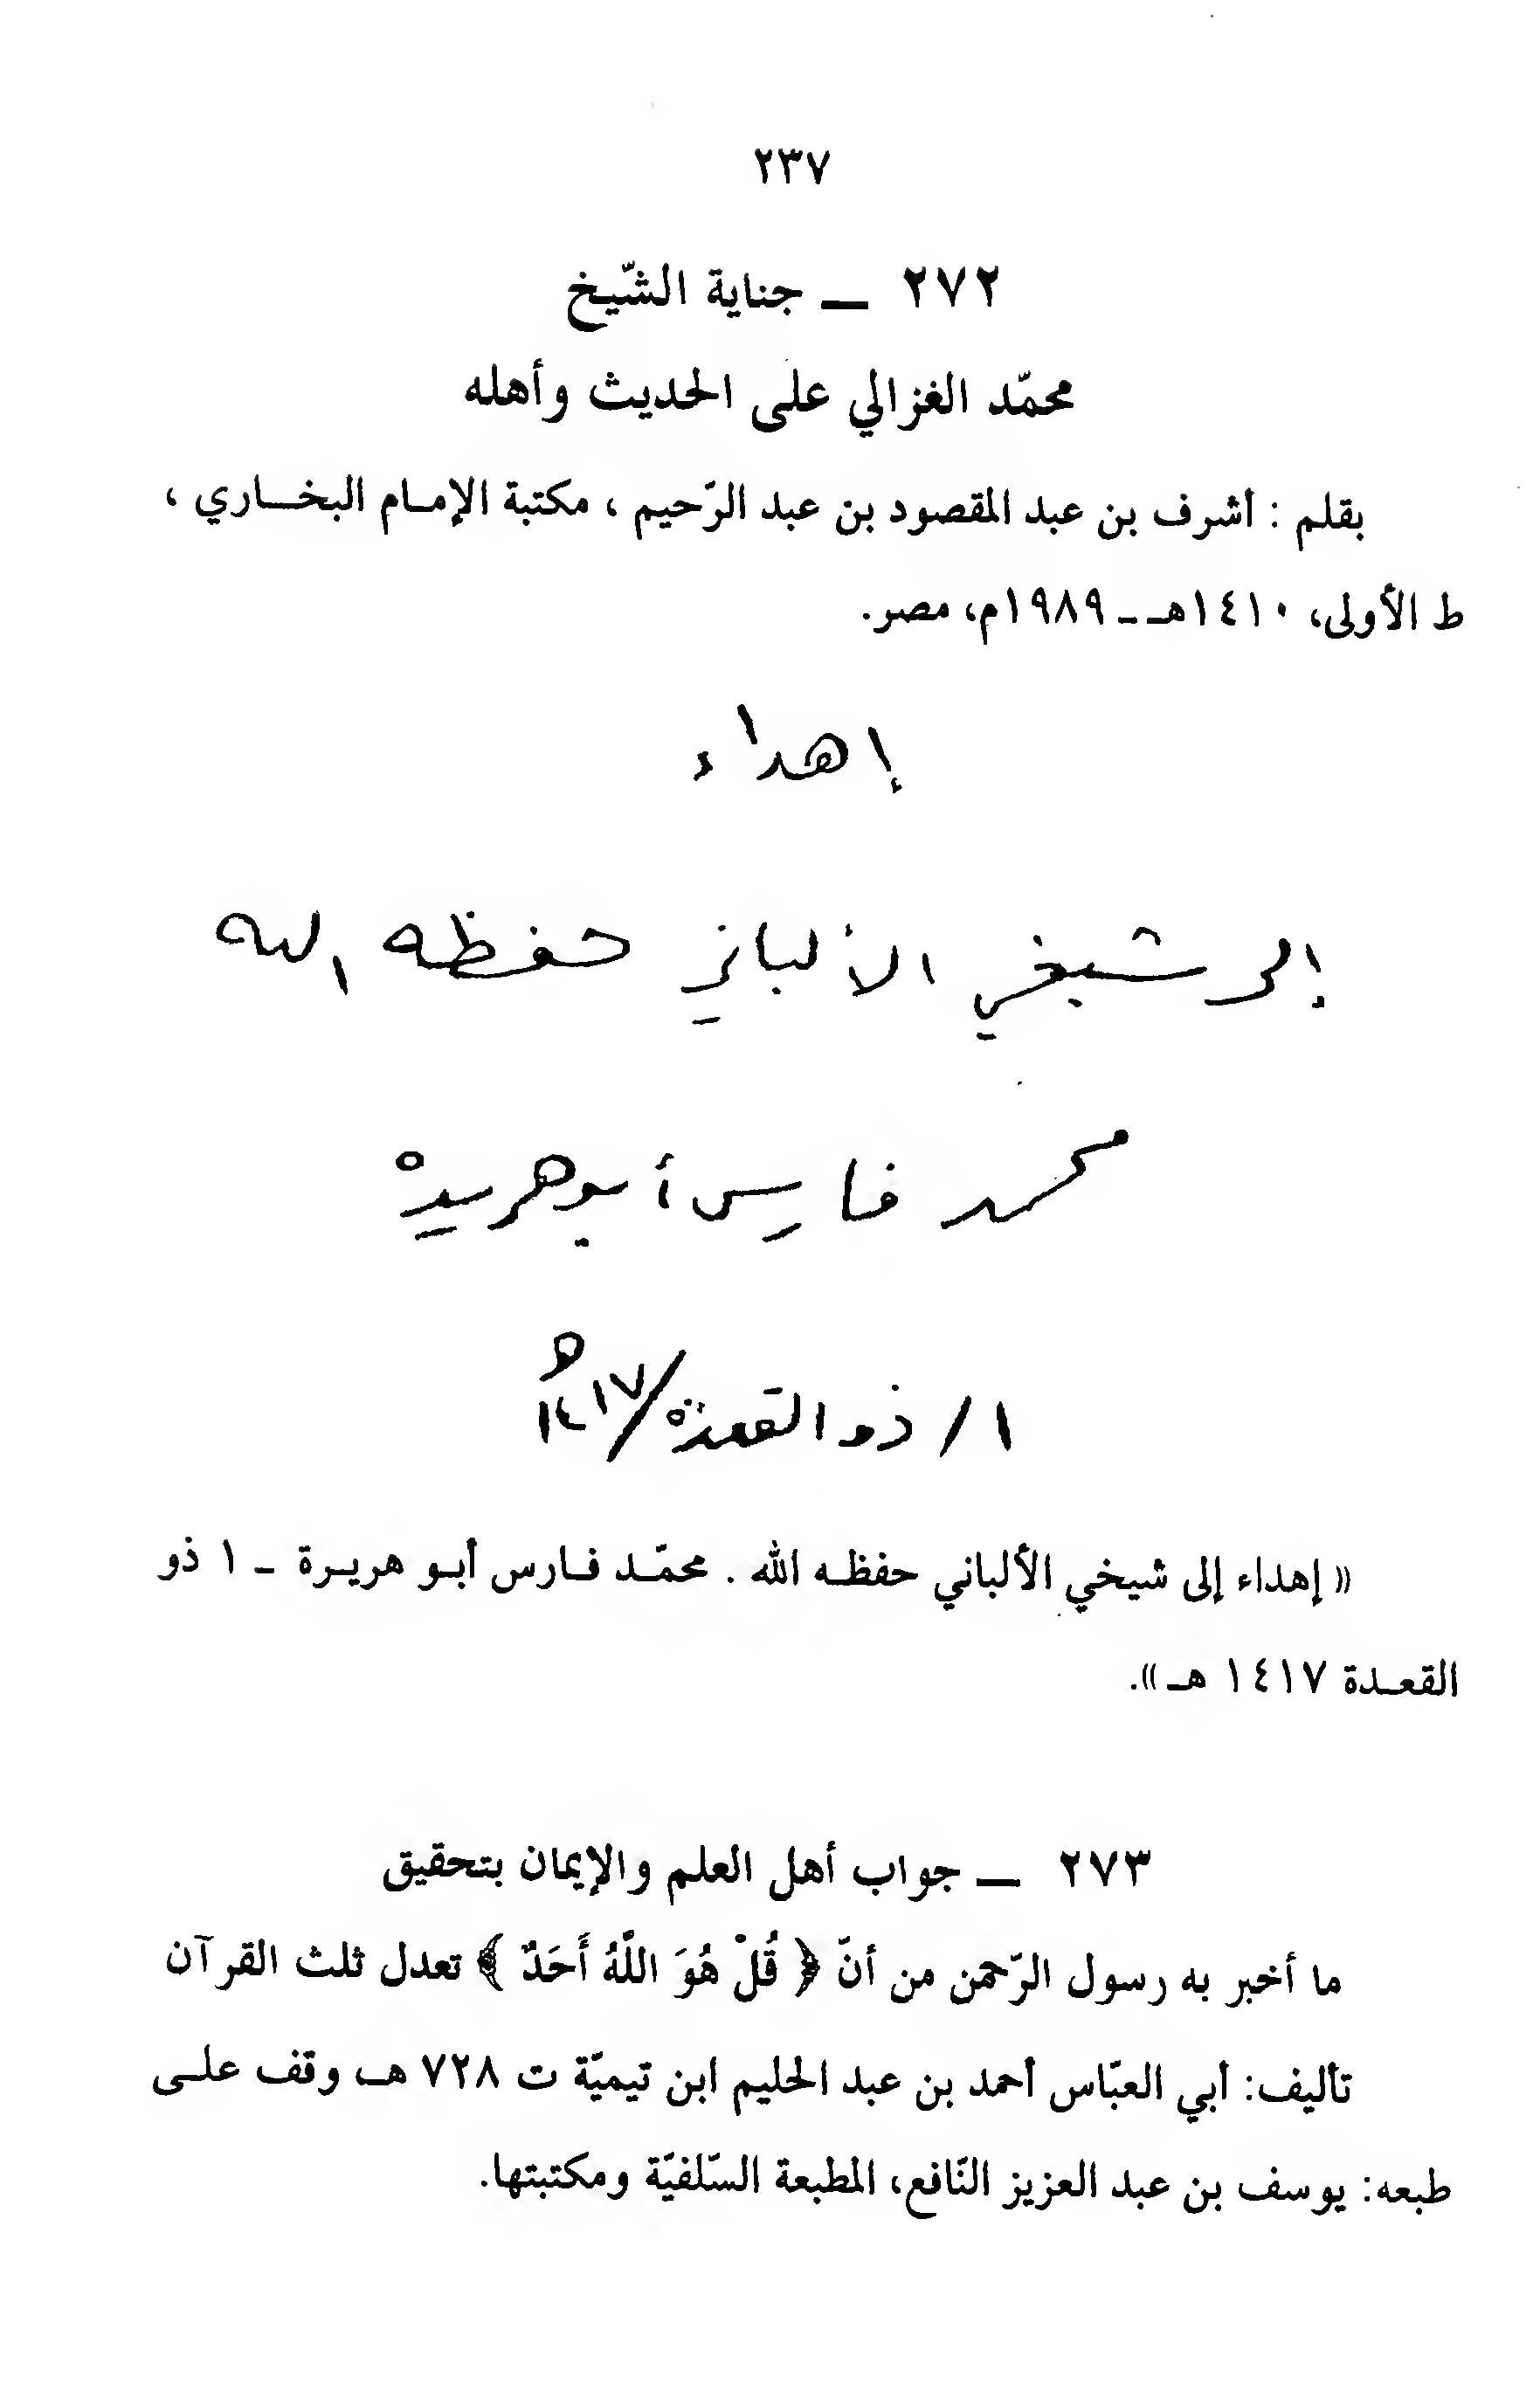 ٢٣٧
٢٧٢ ــ جناية الشّيخ
محمّد الغزالي على الحديث وأهله
بقلم : أشرف بن عبد المقصود بن عبد الرّحيم ، مكتبة الإمام البخاري ،
ط الأولى، ١٤١٠هـ ـ ١٩٨٩م، مصر.
إهداء
إلى شيخي الألباني حفظه الله
محمد فارس أبو هريرة
١ / ذو القعدة / ١٤١٧ هـ
(( إهداء إلى شيخي الألباني حفظه الله . محمّد فارس أبو هريرة ـ ١ ذو
القعدة ١٤١٧ هـ )).
٢٧٣ ــ جواب أهل العلم والإيمان بتحقيق
ما أخبر به رسول الرّحمن من أنّ ﴿ قُلْ هُوَ اللَّهُ أَحَدٌ ﴾ تعدل ثلث القرآن
تأليف: أبي العبّاس أحمد بن عبد الحليم ابن تيميّة ت ٧٢٨ هـ، وقف على
طبعه: يوسف بن عبد العزيز النّافع، المطبعة السّلفيّة ومكتبتها.